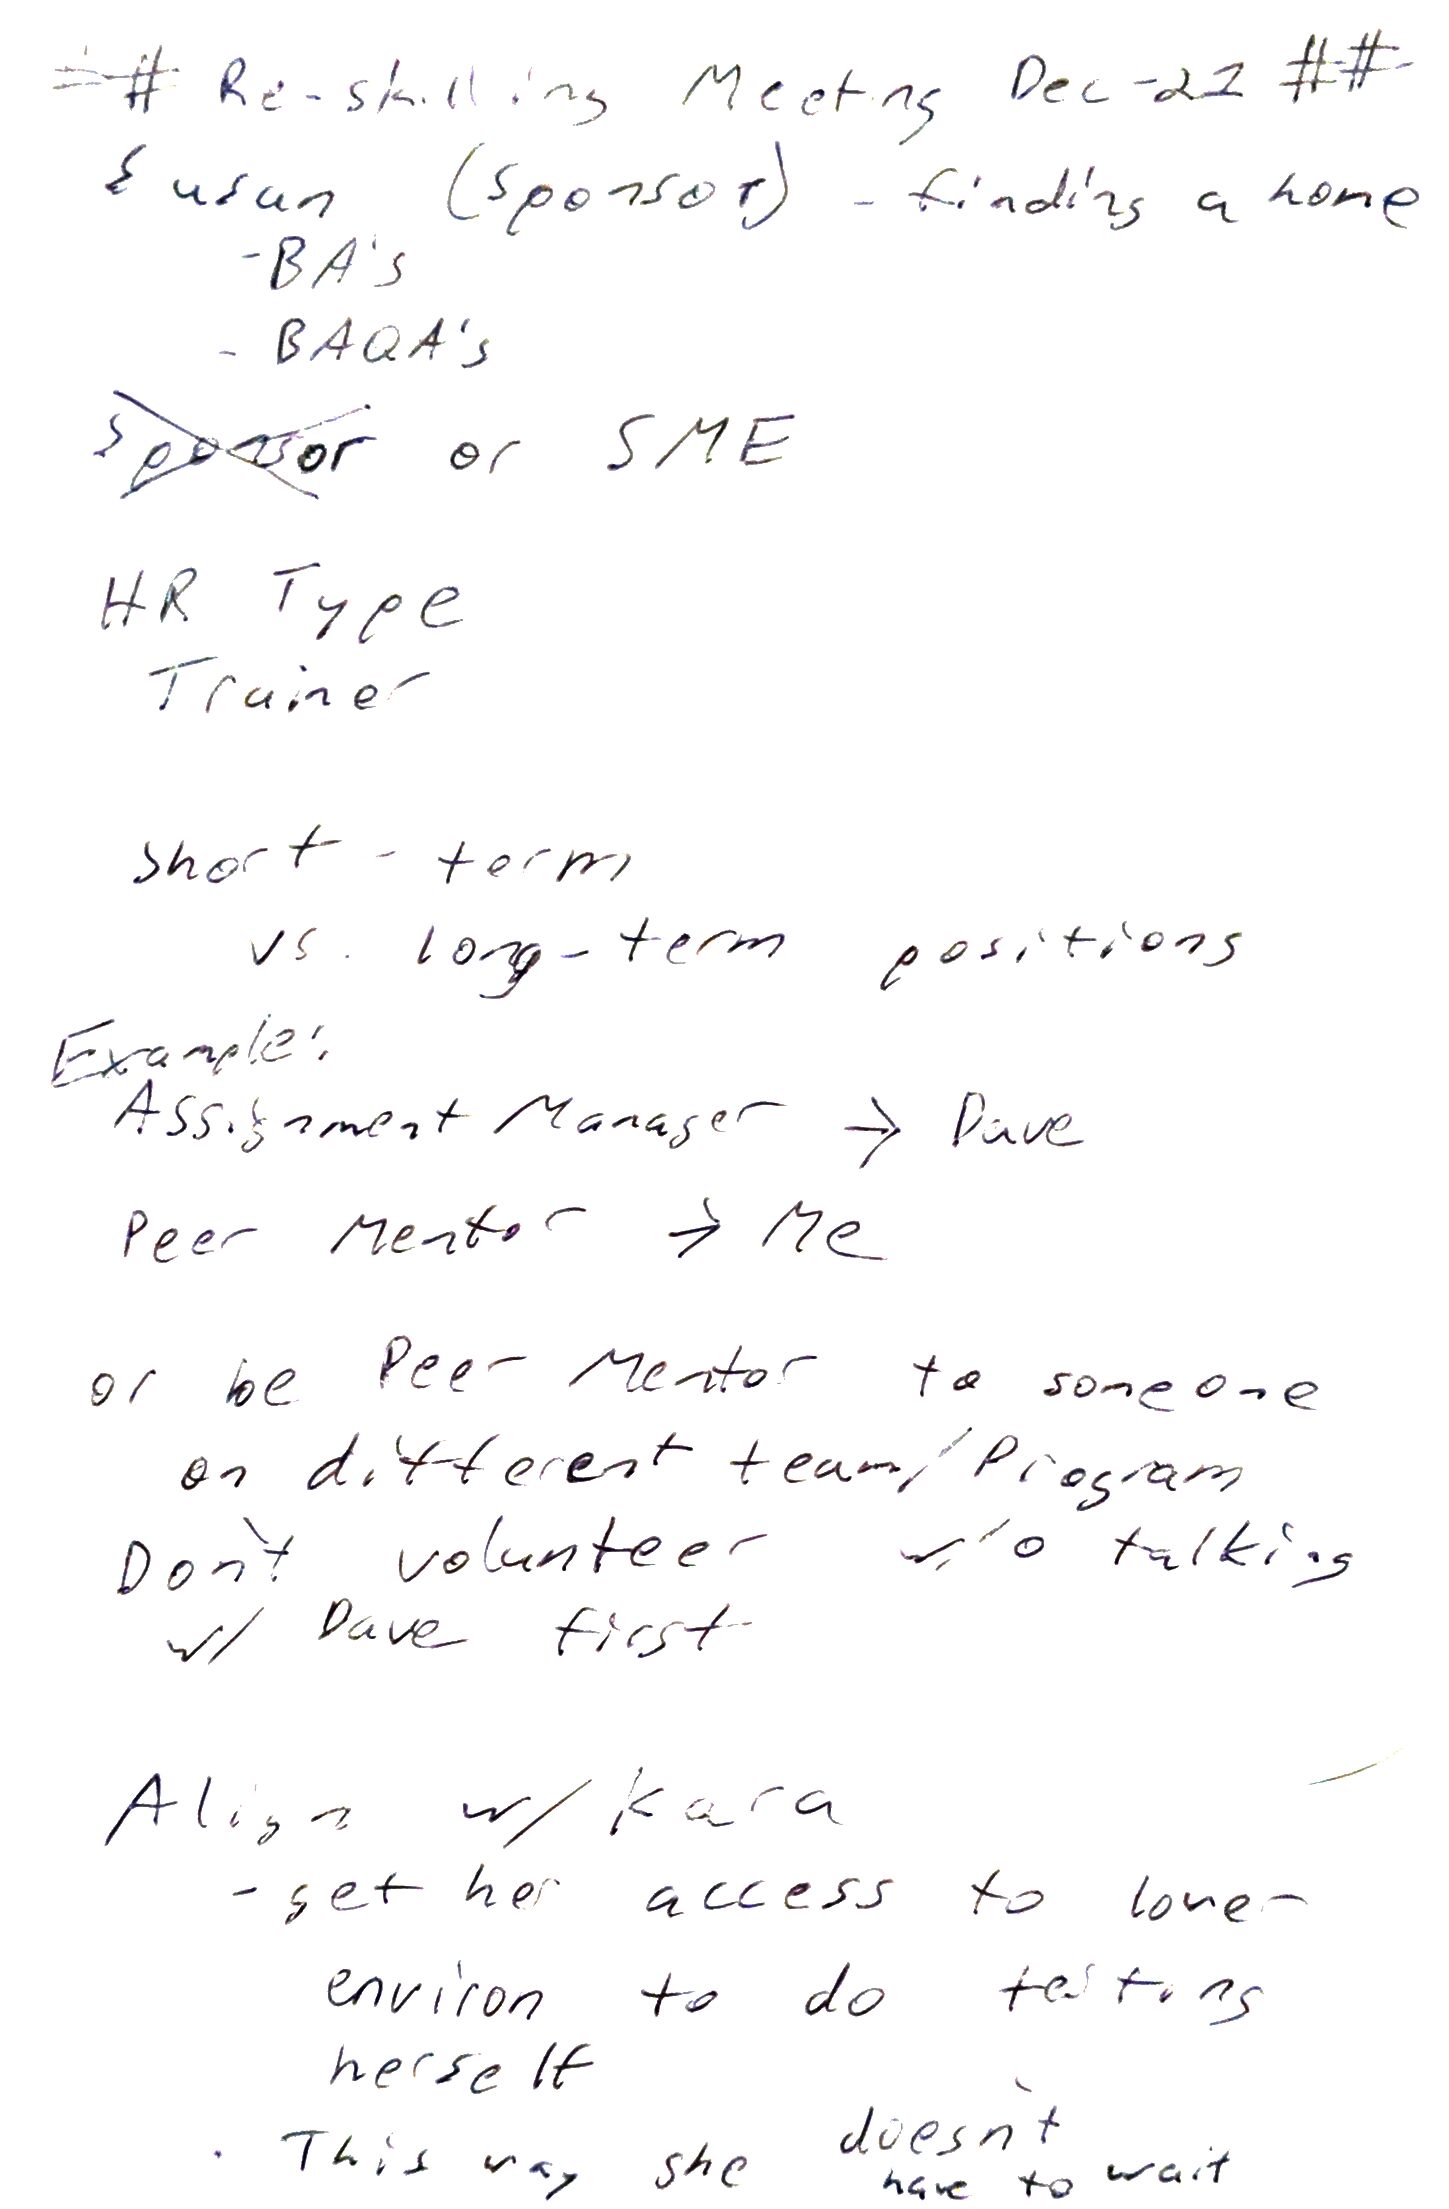 ## Re-skilling Meeting Dec-21 ##
Susan (Sponsor) - finding a home
- BA's
- BAQA's
Sponsor or SME
HR Type
Trainer
Short-term
vs. long-term positions
Example:
Assignment Manager → Dave
Peer Mentor → Me
or be Peer Mentor to someone
on different team/Program
Don't volunteer w/o talking
w/ Dave first
Align w/ Kara
- get her access to lower
environ to do testing
herself
· This way she doesn't
have to wait